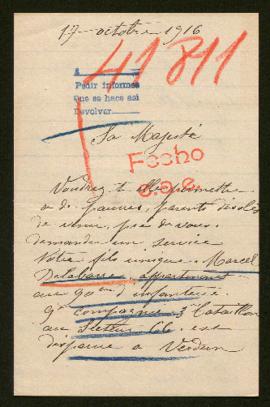 17 octobre 1916
41811
A
Pedir informes
Que se hace así
Devolver
Sa Majesté
Fecho
Voudrez t elle permettre
a de pauvres parents désolés
de venir près de vous
demander un service
Notre fils unique Marcel
Delabarre appartenant
au 90em d'infanterie
9e compagnie 3e Bataillon
au Secteur 66 est
disparu a Verdun